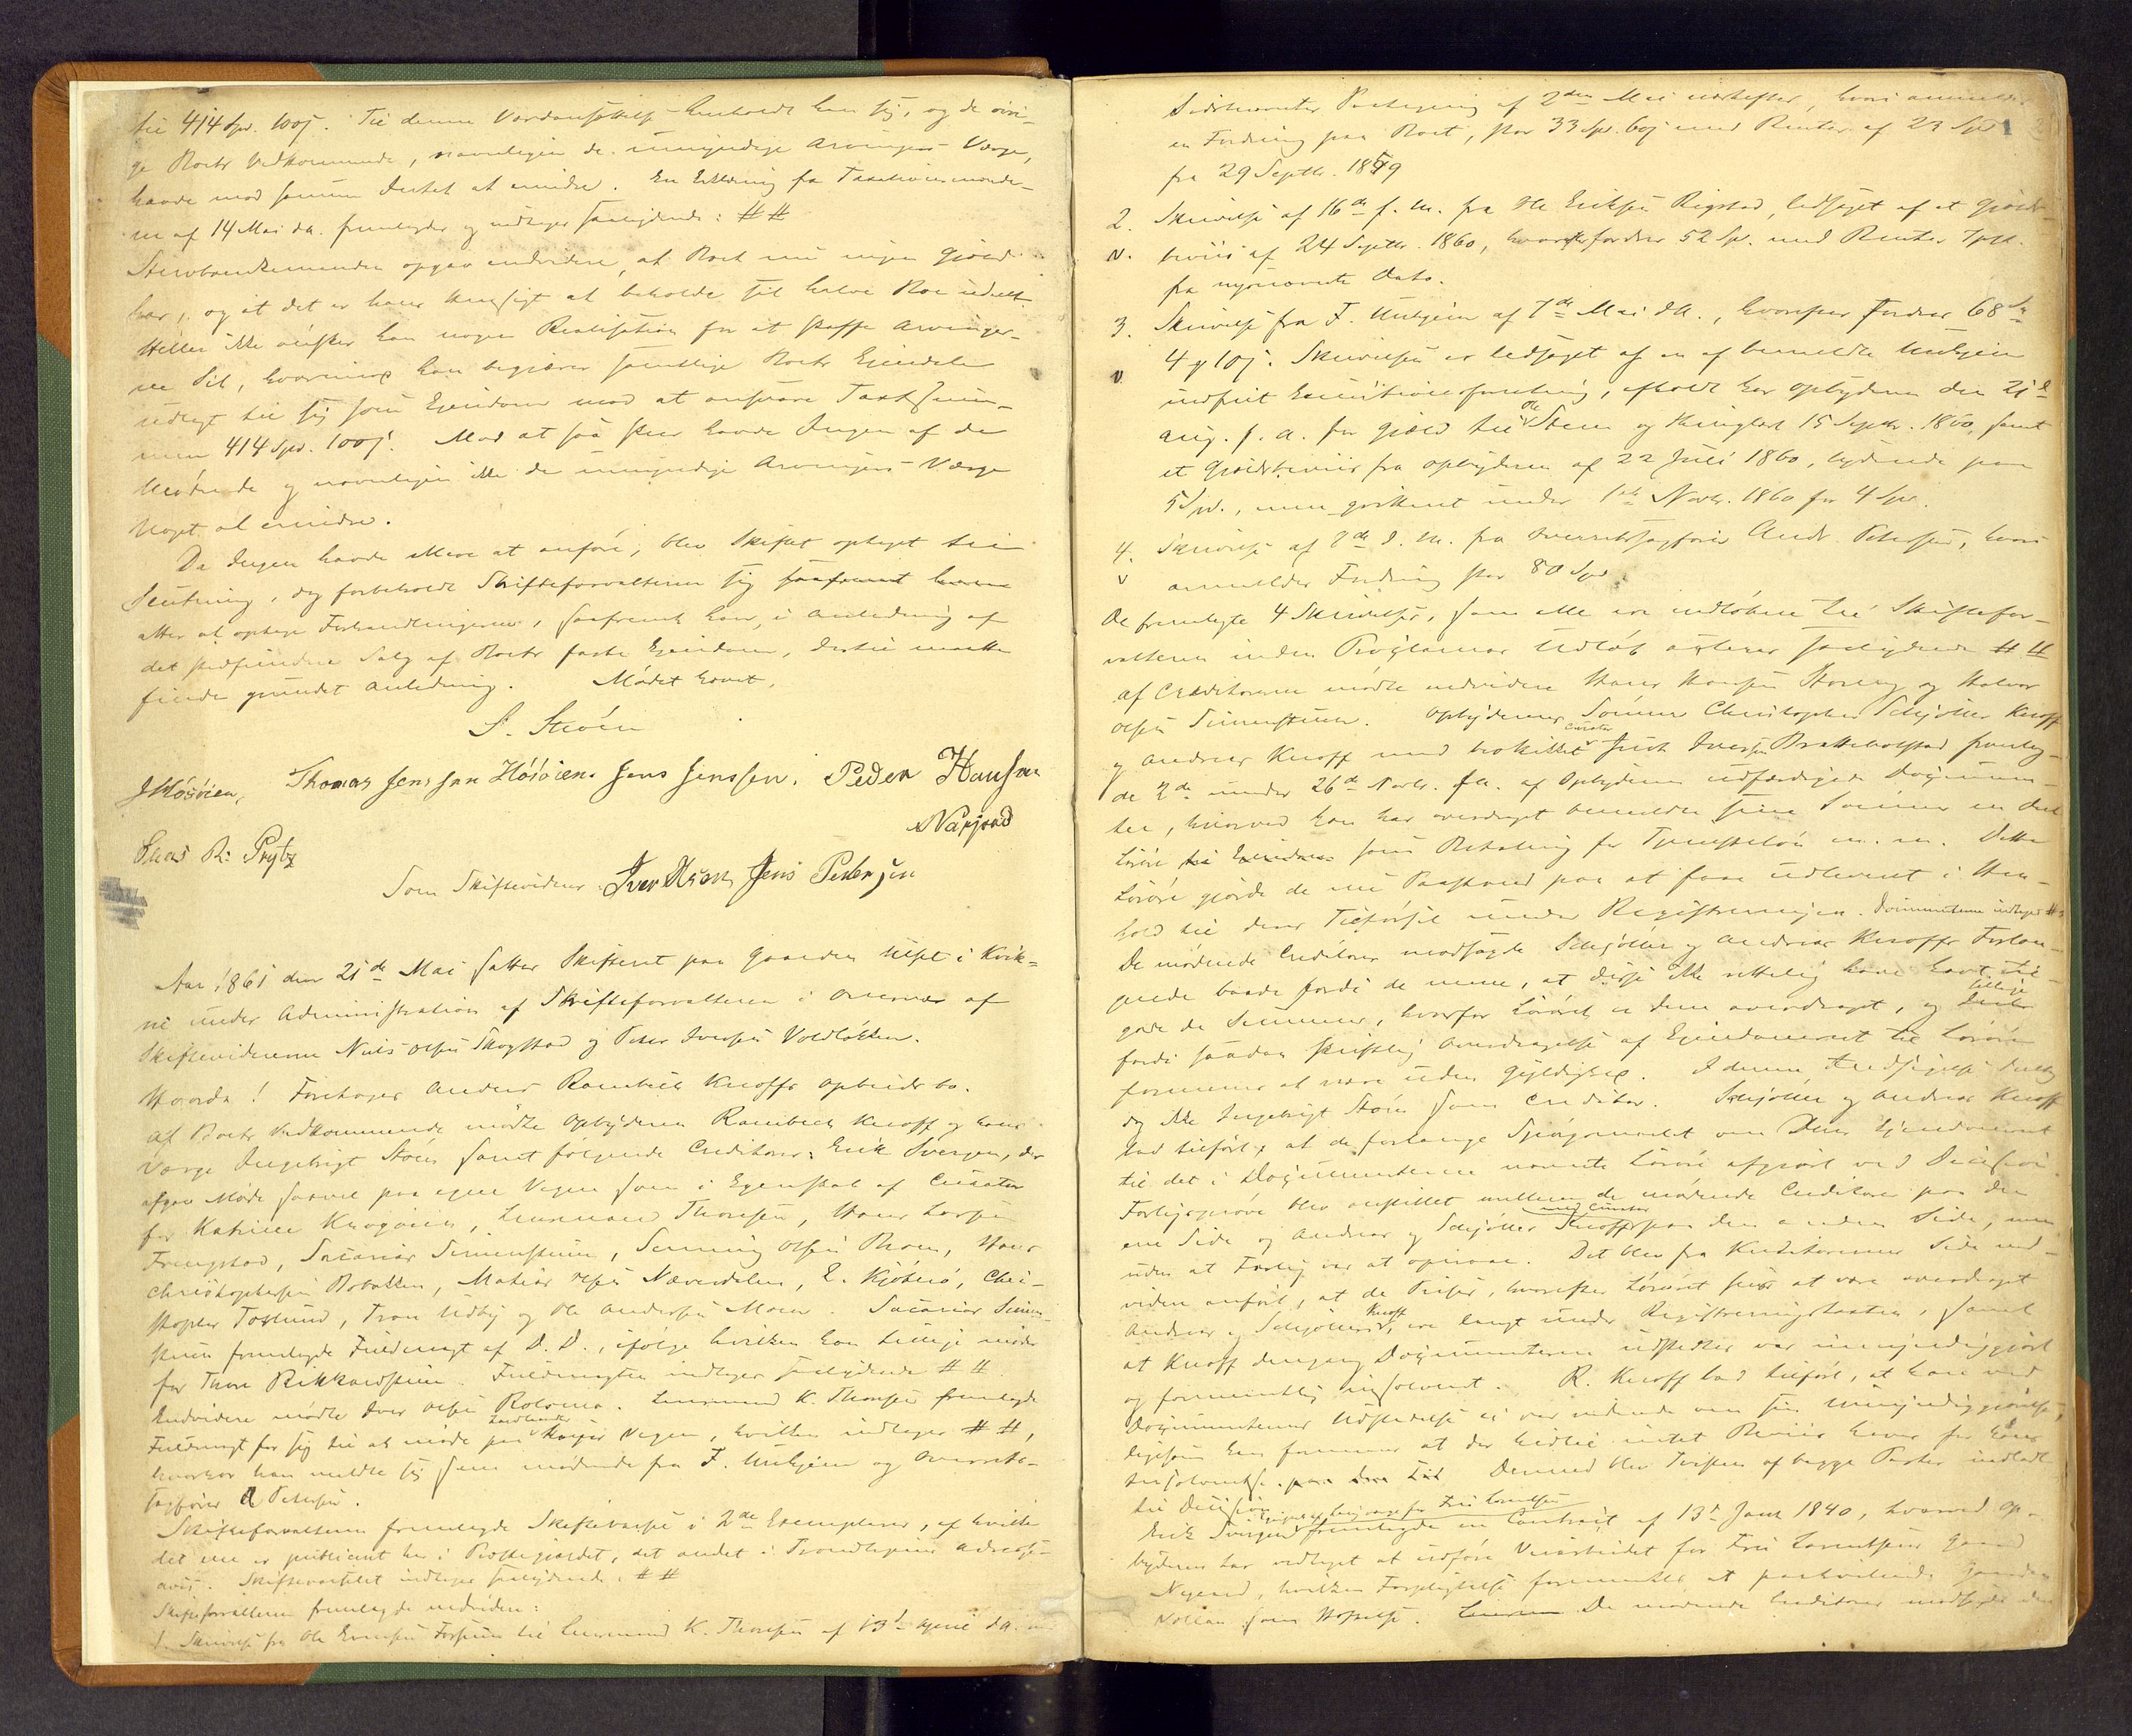 til 414 Spd. 100 s. Til denne Værdiansættelse henholdt han sig, og de øvri-
ge Boets Vedkommende, navnligen de umyndige Arvingers Værge,
havde mod samme Intet at erindre. En Erklæring fra Taxationsmænde-
ne af 14 Mai d.A. fremlagdes og indtages saalydende: # #
Stervboenkemanden opgav endvidere, at Boet nu ingen Gjæld
har, og at det er hans Hensigt at beholde sit halve Boe udelt.
Heller ikke ønsker han nogen Realisation for at skaffe Arvinger-
ne Sit, hvorimod han begjærer samtlige Boets Eiendele
udlagt til sig som Eiendom mod at ansvare Taxtsum-
men 414 Spd. 100 s. Mod at saa skeer havde Ingen af de
Mødende og navnligen ikke de umyndige Arvingers Værge
Noget at erindre.
Da Ingen havde Mere at anføre, blev Skiftet optaget til
Slutning, dog forbeholdt Skifteforvalteren sig saafremt
atter at optage Forhandlingerne, saafremt han, i Anledning af
det stedfindende Salg af Boets faste Eiendom, dertil maatte
finde grundet Anledning. Mødet hævet.
S. Støren
J Høsøien, Thomas Jenssen Høsøien. Jens Jenssen. Peder Hansen
Nærjord
Lars R. Prytz
Som Skiftevidner: Iver Jens Pedersen
Aar 1861 den 21de Mai sattes Skifteret paa Gaarden i Kvik-
ne under Administration af Skifteforvalteren i Overvær af
Skiftevidnerne Niels Olsen Skogstad og Peter Iversen Voldløkken.
Hvorda! Foretages Anders Rambech Knoffs Opbudsbo.
Af Boets Vedkommende mødte Opbyderen Rambech Knoff og hans
Værge Ingebrigt Støen samt følgende Creditorer: Erik Svergen, der
afgav Møde saavel paa egne Vegne som i Egenskab af Curator
for Katrine Krogøien, Lensmand Thomsen, Hans Larsen
Frengstad, Sacarias Simenstuen, Henning Olsen Moen, Hans
Christophersen Bobakken, Mathias Olsen Næverdalen, E. Kjøbnes, Chri-
stopher Toslund, Tron Utby og Ole Andersen Moen. Sacarias Simen-
stuen fremlagde Fuldmagt af D.D., ifølge hvilken han tillige møder
for Thore Rikkardstuen. Fuldmagten indtages saalydende # #
Endvidere mødte Iver Olsen Rolomo. Lensmand K. Thomsen fremlagde
Fuldmagt for sig til at møde paa Landhandler Vegne, hvilken indtages # #,
hvorhos han meldte sig som mødende for F. Unhjem og Overrets-
sagfører A Petersen.
Skifteforvalteren fremlagde Skiftevarsel i 2de Exemplarer, af hvilke
det ene er publiceret her i Præstegjældet, det andet i Trondhjems Adresse-
avis. Skiftevarslet indtages saalydende: # #
Skifteforvalteren fremlagde endvidere:
1. Skrivelse fra Ole Fossum til Lensmand K. Thomsen af 13de April d.A. med
Sidstnævntes Paategning af 2den Mai næstefter, hvori anmeldes
en Fordring paa Boet, stor 33 Spd. 60 s med Renter af 23 Spd
fra 29 Septbr. 1859
2. Skrivelse af 16de f.M. fra Ole Eriksen Rigstad, ledsaget af et Gjælds-
v. beviis af 24 Septbr. 1860, hvorefter fordres 52 Sp. med Renter 
fra nysnævnte Dato.
3. Skrivelse fra F. Unhjem af 7de Mai d.A., hvorefter fordres 68 Sp
v 4 # 10 s. Skrivelsen er ledsaget af en af bemeldte Unhjem
indfriet Executionsforretning, afholdt hos Opbyderen den 21de
Aug. f.A. for Gjæld til Ole Støen og thinglæst 15 Septbr. 1860, samt
et Gjældsbeviis fra Opbyderen af 22 Juli 1860, lydende paa
5 Spd., men qvitteret under 1ste Novbr. 1860 for 4 Spd.
4. Skrivelse af 8de d.M. fra Overretssagfører Andr. Petersen, hvori
v anmeldes Fordring stor 80 Spd.
De fremlagte 4 Skrivelser, som alle ere indløbne til Skiftefor-
valteren inden Proclamas Udløb saalydende # #
Af Creditorerne mødte endvidere Hans Hansen og Halvor
Olsen Simenstuen. Opbyderens Sønner Christopher Schjøller Knoff
og Andreas Knoff med beskikket Curator Iversen Brattebolstad fremlag-
de 2de under 26de Novbr. f.A. af Opbyderen udfærdigede Documen-
ter, hvorved han har overdraget bemeldte sine Sønner en Deel
Løsøre til Eiendom som Betaling for Tjenesteløn m.m. Dette
Løsøre gjorde de nu Paastand paa at faae udleveret i Hen-
hold til deres Tilførsel under Registreringen. Documenterne indtages #
De mødende Creditorer modsagde Schjøller og Andreas Knoffs Forlan-
gende baade fordi de mene, at disse ikke retteligen have havt til-
gode de Summer, hvorfor Løsøret er dem overdraget, og tillige
fordi saadan skriftlig Overdragelse af Eiendomsret til Løsøre
formenes at være uden Gyldighed. I denne Indsigelse deeltog
dog ikke Ingebrigt Støen som Creditor. Schjøller og Andreas Knoff
lod tilføre, at de forlange Spørgsmaalet om deres Eiendomsret
til det i Documenterne nævnte Løsøre afgjort ved Decision.
Forligsprøve blev anstillet mellem de mødende Creditorer paa den
ene Side og Andreas og Schjøller Knoff med Curator paa den anden Side, men
uden at Forlig var at opnaae. Det blev fra Creditorernes Side end-
videre anført, at de Priser, hvorefter Løsøret siges at være overdraget
Andreas og Schjøller Knoff, ere langt under Registreringstaxten, samt
at Knoff dengang Documenterne udstedtes var umyndiggjort
og formeentlig insolvent. R. Knoff lod tilføre, at han ved
Documenternes Udstedelse ei var vidende om sin Umyndiggjørelse,
ligesom han formener at der hidtil intet Beviis haves for hans
Insolventse paa den Tid. Dermed blev Tvisten af begge Parter indladt
til Decision.
Erik Svergen fremlagde en Contract af 13de Janr 1840, hvorved Op-
byderen har vedtaget at udføre Veiarbeidet for Fru Lorentzens Gaard
Nygaard, hvilken Forpligtelse formeentlig at paahvile Gaarden
Vollan som Heftelse. De mødende Creditorer modsagde